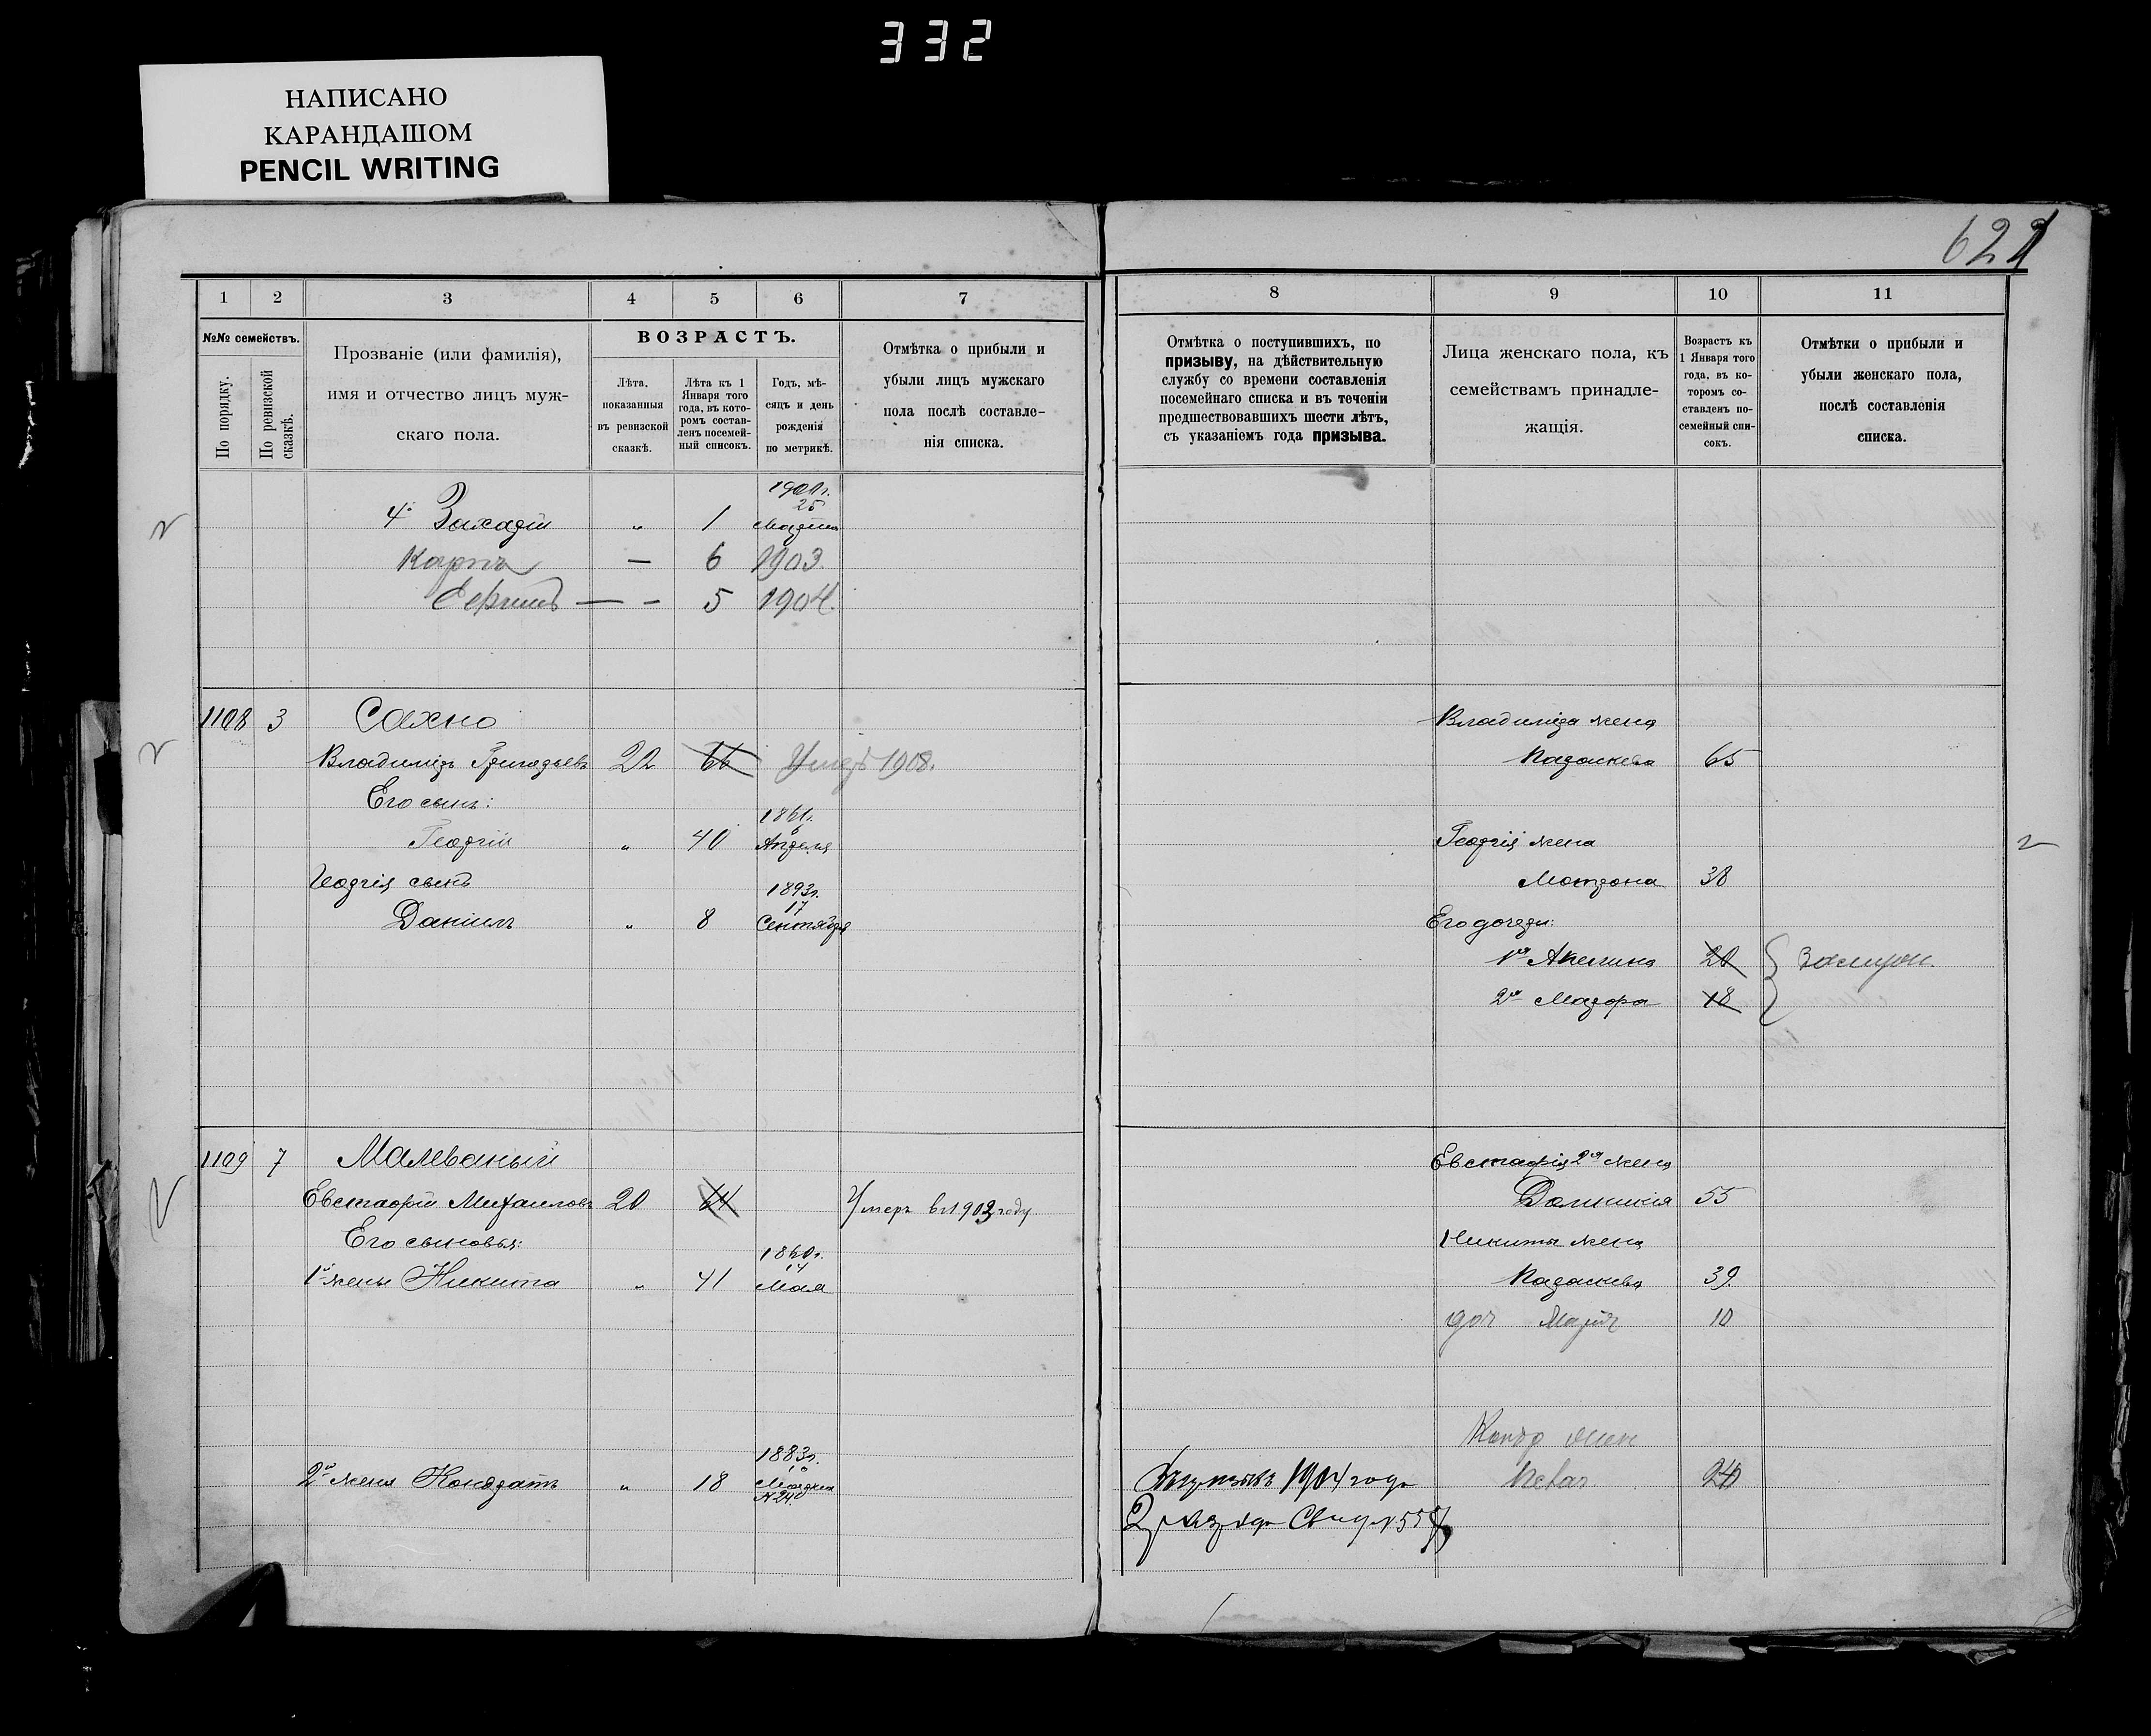 332
НАПИСАНО
КАРАНДАШОМ
PENCIL WRITING
622
1 2 3 4 5 6 7
№№ семействъ.
По порядку.
По ревизской сказкѣ.
Прозваніе (или фамилія),
имя и отчество лицъ муж-
скаго пола.
ВОЗРАСТЪ.
Лѣта,
показанныя
въ ревизской
сказкѣ.
Лѣта къ 1
Января того
года, въ кото-
ромъ состав-
ленъ посемей-
ный списокъ.
Годъ, мѣ-
сяцъ и день
рожденія
по метрикѣ.
Отмѣтка о прибыли и
убыли лицъ мужскаго
пола послѣ составле-
нія списка.
1901г.
25
4й Захарій " 1 Марта
Карпъ — 6 1903.
Ефимъ — - 5 1904.
1108 3 Сахно
Владиміръ Григорьевъ 22 66 Умеръ 1908.
Его сынъ:
1861г.
6
Георгій " 40 Апрѣля
Георгія сынъ
1893г.
17
Даніилъ " 8 Сентября
1109 7 Малеваный
Евстафій Михаиловъ 20 64 Умеръ въ 1903 году
Его сыновья:
1860г.
14
1й жены Никита " 41 Мая
1883г.
10
2й жены Кондратъ " 18 Марта
№240
8 9 10 11
Отмѣтка о поступившихъ, по
призыву, на дѣйствительную
службу со времени составленія
посемейнаго списка и въ теченіи
предшествовавшихъ шести лѣтъ,
съ указаніемъ года призыва.
Лица женскаго пола, къ
семействамъ принадле-
жащія.
Возрастъ къ
1 Января того
года, въ ко-
торомъ со-
ставленъ по-
семейный спи-
сокъ.
Отмѣтки о прибыли и
убыли женскаго пола,
послѣ составленія
списка.
Владиміра жена
Параскева 65
Георгія жена
Мотрона 38
Его дочери:
1я Акелина 20 Замуж.
2я Марфа 18
Евстафія 2я жена
Домникія 55
Никиты жена
Параскева 39.
доч Марія 10
Кондр жен
1904 года 20
2 разряда Свид №